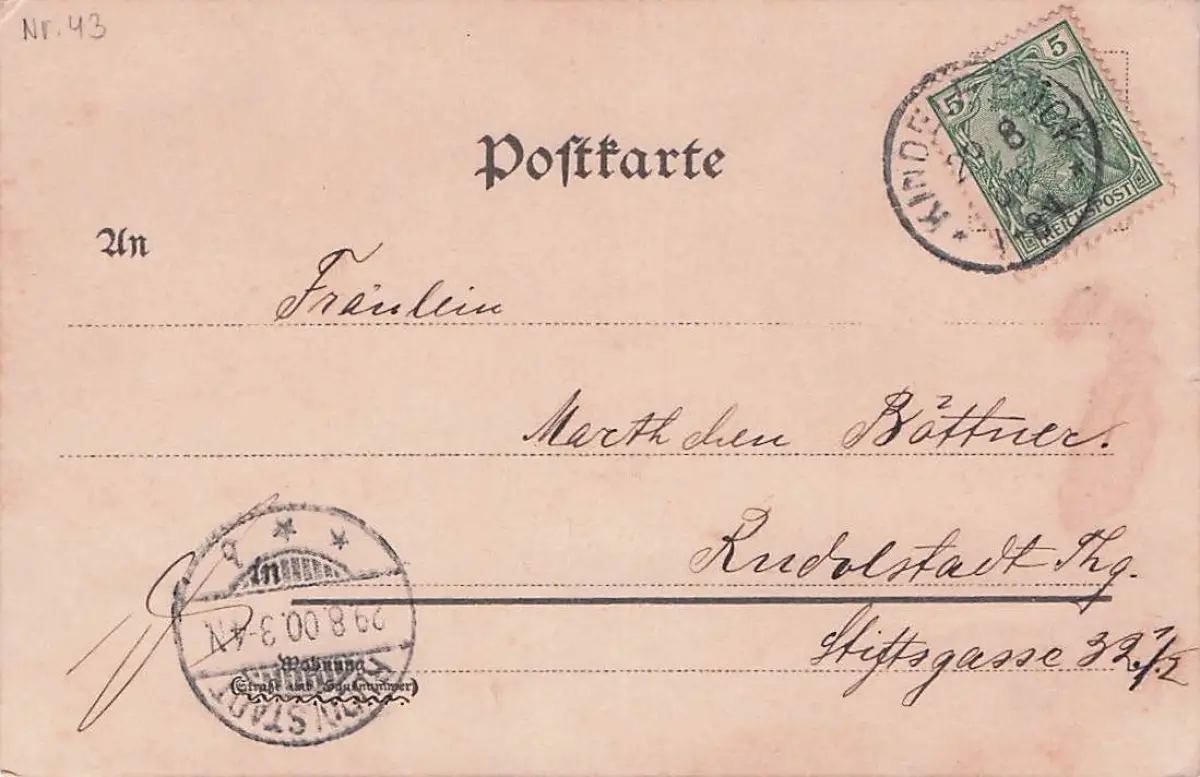 Nr. 43
5 5
REICHSPOST
29 8
Postkarte
An
Fräulein
Marthchen Böttner.
Rudolstadt Thg.
in
29.8.00.3-4N
Wohnung
(Straße und Hausnummer)
Stiftsgasse 32 1/2